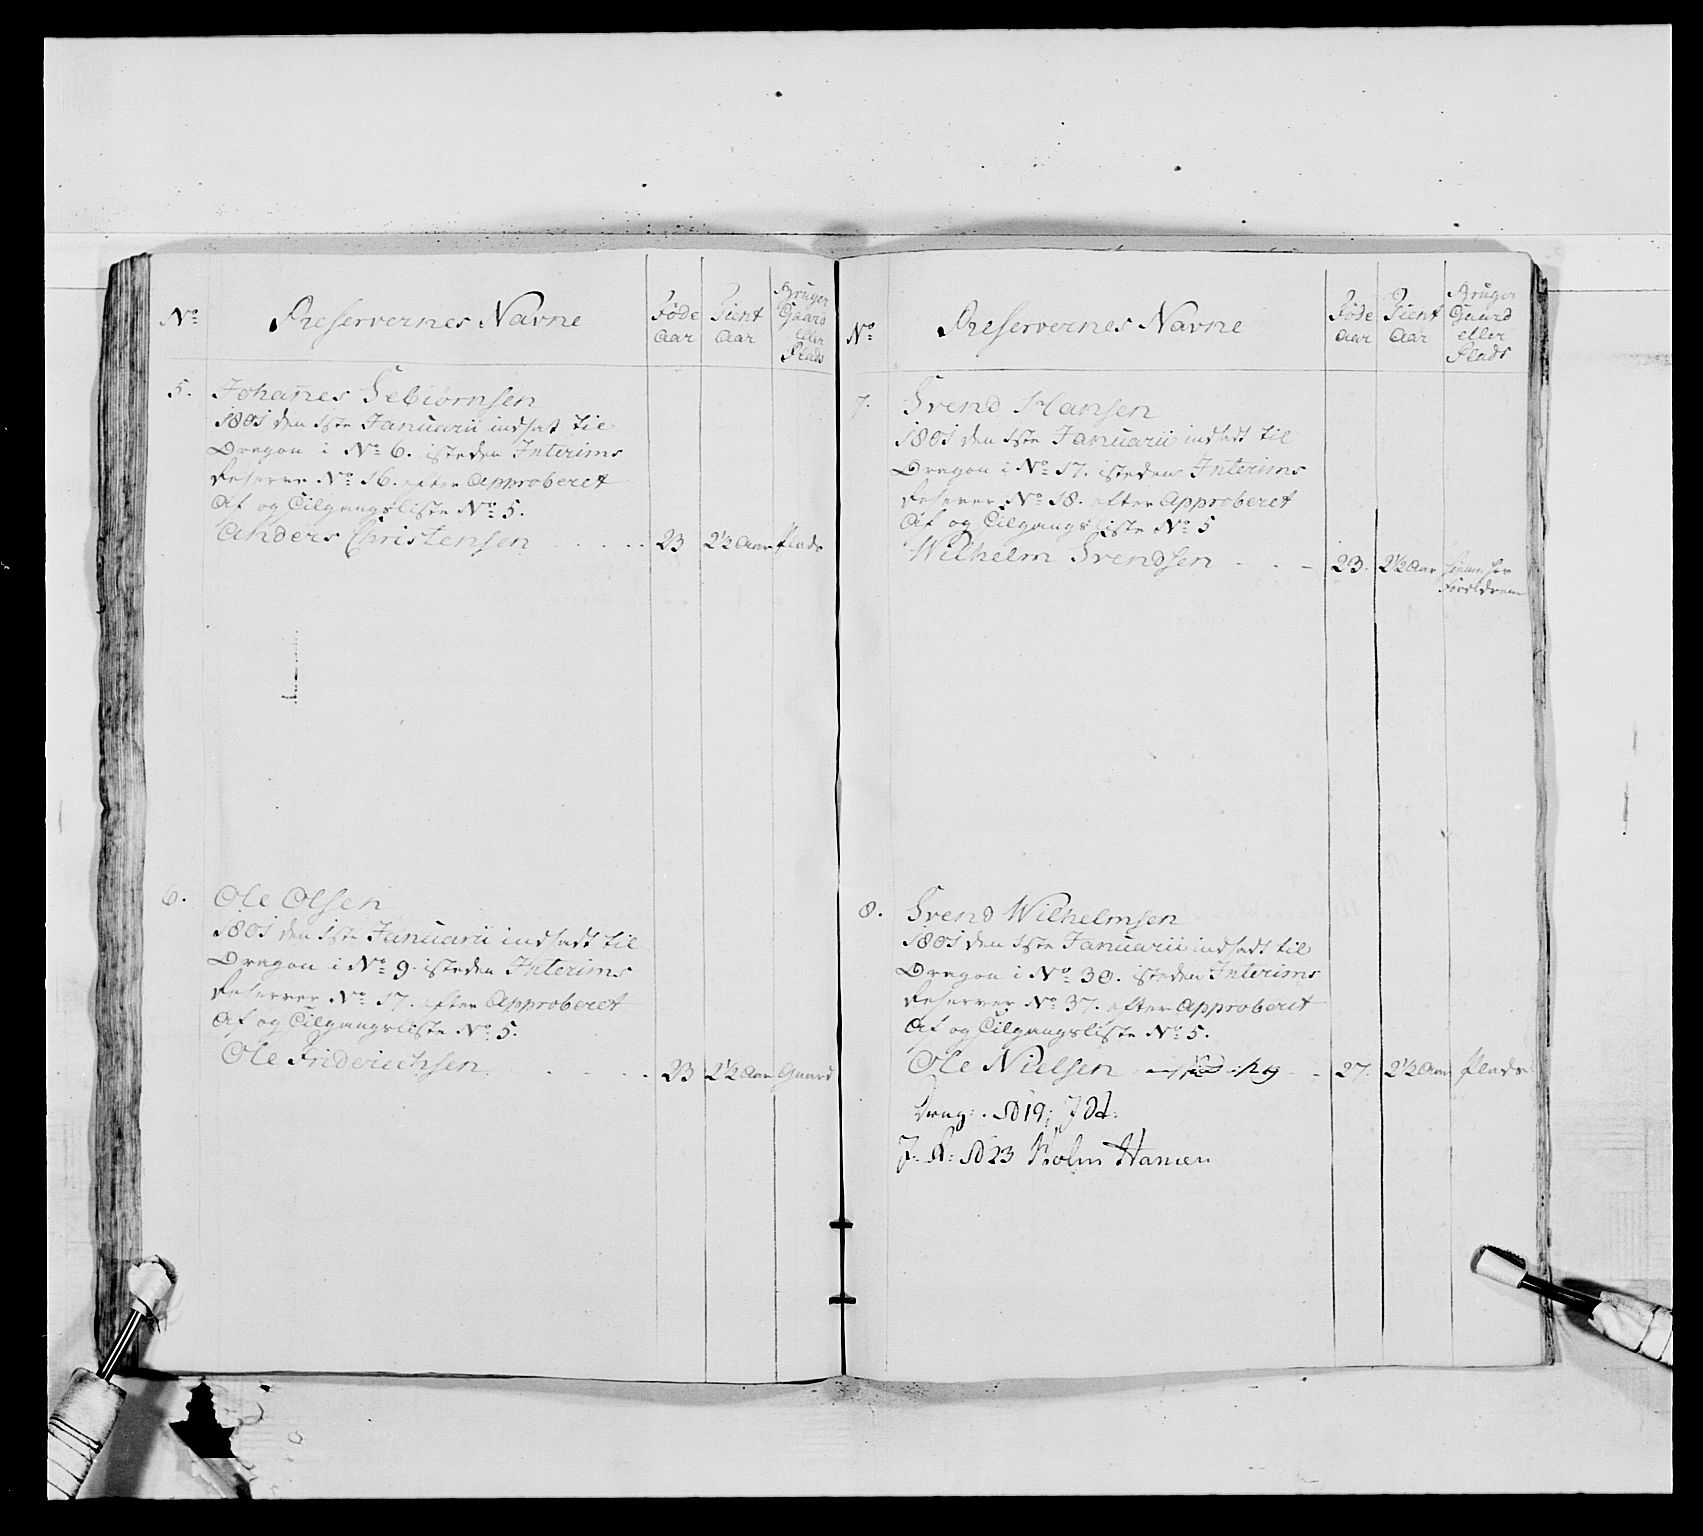 No Reservernes Navne Føde Aar Tient Aar Bruger Gaard eller Plads
5. Johan̅es Sebiørnsen
1801 den 1ste Januarii indsat til
Dragon i No 6. isteden Interims
Reserve No 16. efter Approberet
Af og Tilgangsliste No 5.
Anders Christensen 23 2½ Aar Plads
6. Ole Olsen
1801 den 1ste Januarii indsadt til
Dragon i No 9. isteden Interims
Reserver No 17. efter Approberet
Af og Tilgangsliste No 5.
Ole Friderichsen 23 2½ Aar Gaard
No Reservernes Navne Føde Aar Tient Aar Bruger Gaard eller Plads
7. Svend Hansen
1801 den 1ste Januarii indsadt til
Dragon i No 17. isteden Interims
Reserver No 18. efter Approberet
Af og Tilgangsliste No 5
Wilhelm Svendsen 23. 2½ Aar hiemme hos
Forældrene
8. Svend Wilhelmsen
1801 den 1ste Januarii indsadt til
Dragon i No 30. isteden Interims
Reserver No 37. efter Approberet
Af og Tilgangsliste No 5.
Ole Nielsen 27. 2½ Aar Plads
Drag: No 19;
J: R: No 23 Holm Hansen